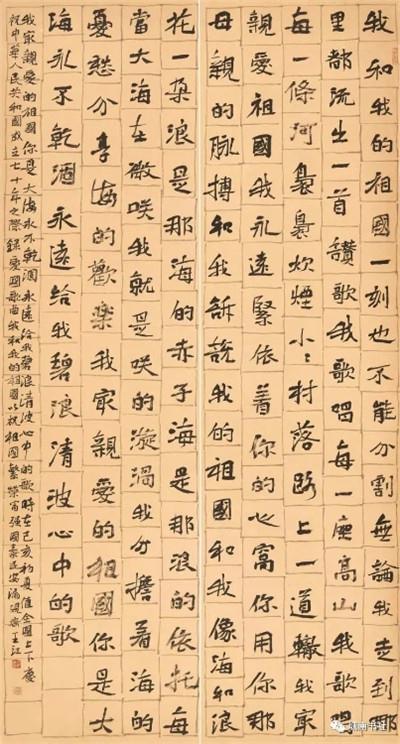 我和我的祖國一刻也不能分割無論我走到哪
里都流出一首讚歌我歌唱每一座高山我歌唱
每一條河裊裊炊煙小〻村落路上一道轍我冣
親愛祖國我永遠緊依着你的心窩你用你那
母親的脉搏和我訴說我的祖國和我像海和浪
花一朵浪是那海的赤子海是那浪的依托每
當大海在微咲我就是咲的漩渦我分擔着海的
憂愁分享海的歡樂我冣親愛的祖國你是大
海永不乾涸永遠給我碧浪清波心中的歌
我冣親愛的祖國你是大海永不乾涸永遠給我碧浪清波心中的歌時在己亥初夏值全國上下慶
祝中華人民共和國成立七十年之際錄愛國歌曲我和我的祖國以祝祖國繁榮富强國泰民安王江